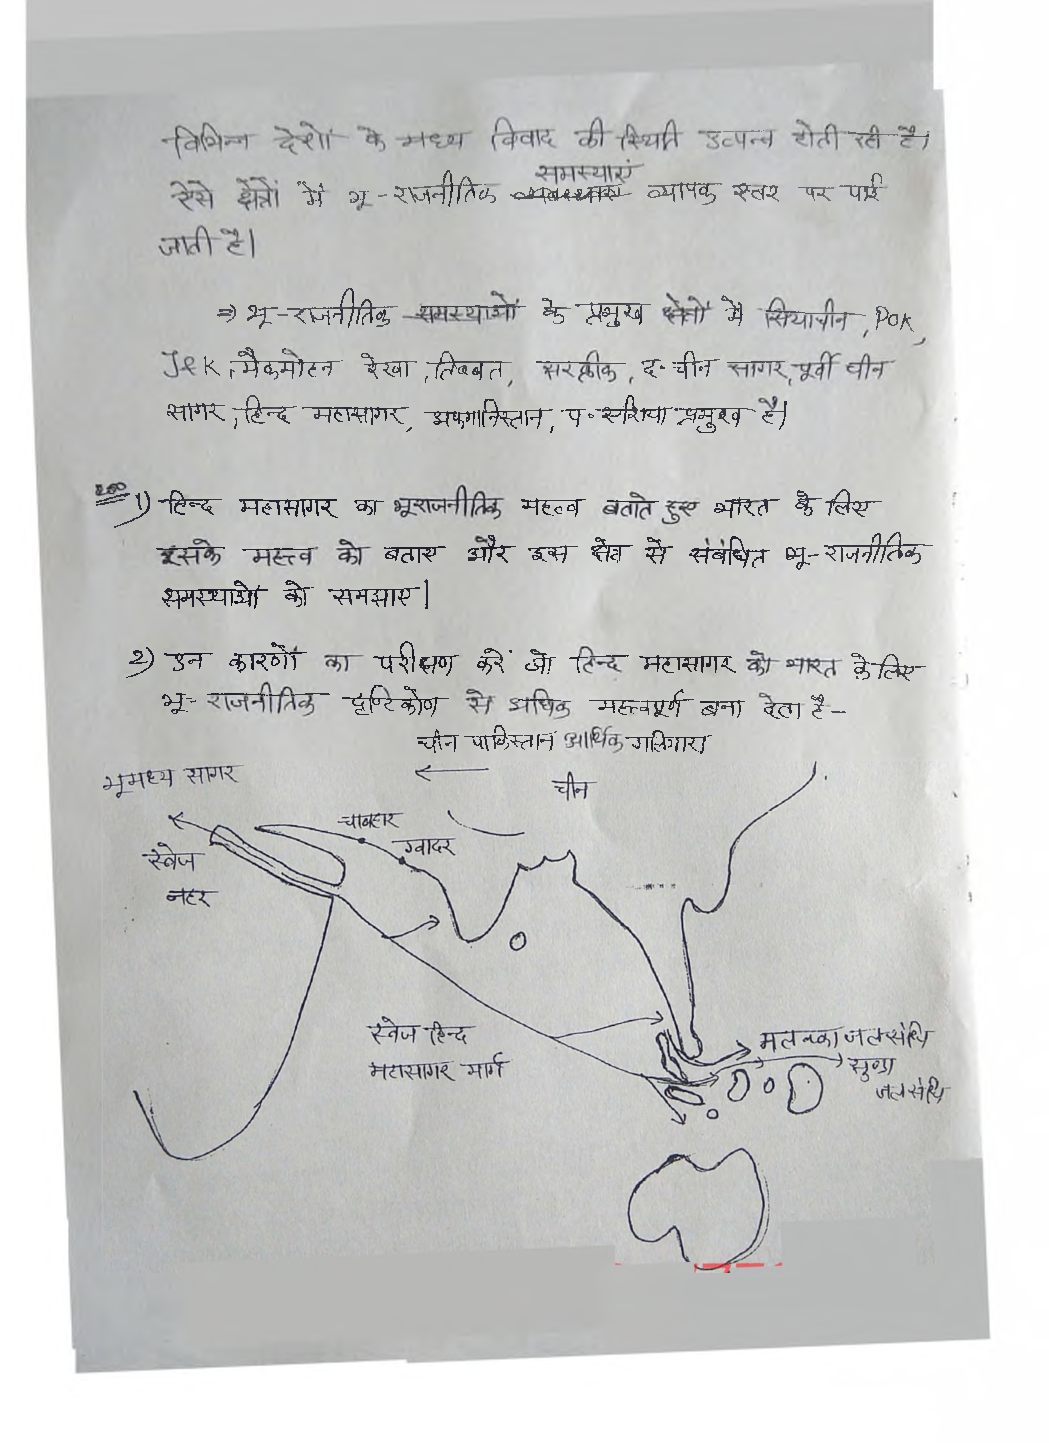 विभिन्न देशों के मध्य विवाद की स्थिती उत्पन्न होती रही है।
समस्याएं
ऐसे क्षेत्रों में भू-राजनीतिक व्यापक स्तर पर पाई
जाती है।
⇒ भू-राजनीतिक समस्याओं के प्रमुख क्षेत्रों में सियाचीन, POK,
J&K, मैकमोहन रेखा, तिब्बत, सरक्रीक, द॰ चीन सागर, पूर्वी चीन
सागर, हिन्द महासागर, अफगानिस्तान, प॰ एशिया प्रमुख है।
250
1) हिन्द महासागर का भूराजनीतिक महत्व बताते हुए भारत के लिए
इसके महत्व को बताए और इस क्षेत्र से संबंधित भू-राजनीतिक
समस्याओं को समझाए।
2) उन कारणों का परीक्षण करें जो हिन्द महासागर को भारत के लिए
भू-राजनीतिक दृष्टिकोण से अधिक महत्वपूर्ण बना देता है-
चीन पाकिस्तान आर्थिक गलियारा
भूमध्य सागर
चीन
चाबहार
ग्वादर
स्वेज
नहर
स्वेज हिन्द
महासागर मार्ग
मलक्का जलसंधि
सुण्डा
जलसंधि